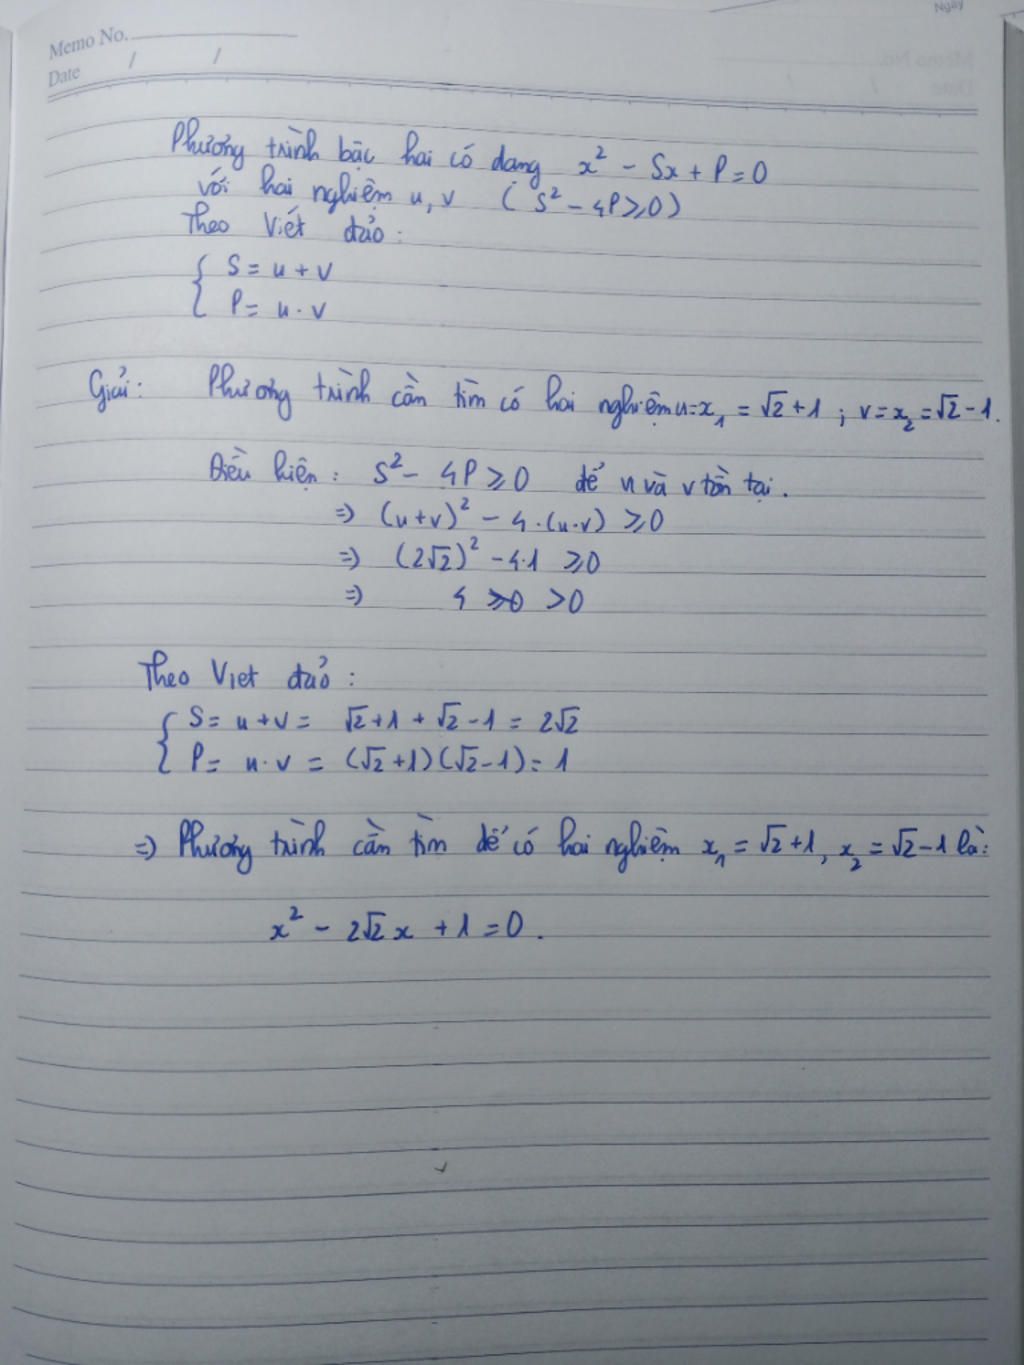 Ngày
Memo No.
Date / /
Phương trình bậc hai có dạng x² - Sx + P = 0
với hai nghiệm u, v ( S² - 4P ≥ 0 )
Theo Viét đảo :
{ S = u + v
P = u . v
Giải : Phương trình cần tìm có hai nghiệm u = x₁ = √2 + 1 ; v = x₂ = √2 - 1.
Điều kiện : S² - 4P ≥ 0 để u và v tồn tại .
=> (u+v)² - 4.(u.v) ≥ 0
=> (2√2)² - 4.1 ≥ 0
=> 4 > 0
Theo Viet đảo :
{ S = u + v = √2 + 1 + √2 - 1 = 2√2
P = u . v = (√2 + 1)(√2 - 1) = 1
=> Phương trình cần tìm để có hai nghiệm x₁ = √2 + 1, x₂ = √2 - 1 là :
x² - 2√2 x + 1 = 0 .